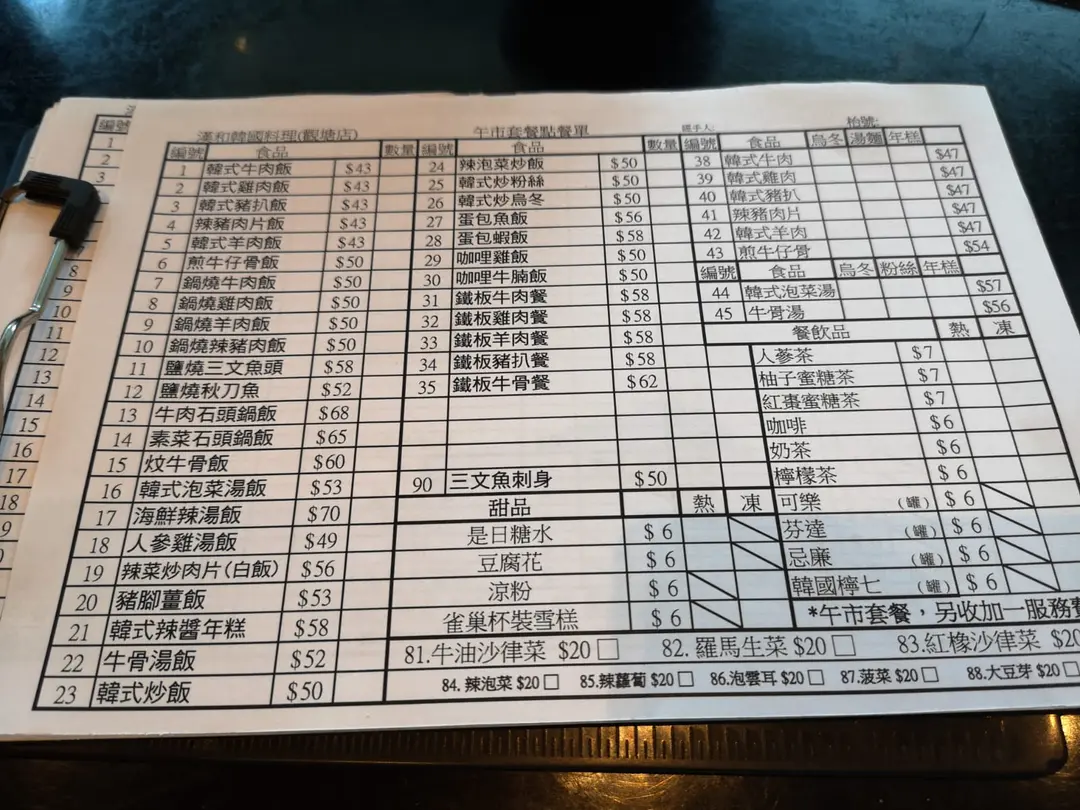 漢和韓國料理(觀塘店) 午市套餐點餐單 經手人: 枱號:
編號 食品 數量
1 韓式牛肉飯 $43
2 韓式雞肉飯 $43
3 韓式豬扒飯 $43
4 辣豬肉片飯 $43
5 韓式羊肉飯 $43
6 煎牛仔骨飯 $50
7 鍋燒牛肉飯 $50
8 鍋燒雞肉飯 $50
9 鍋燒羊肉飯 $50
10 鍋燒辣豬肉飯 $50
11 鹽燒三文魚頭 $58
12 鹽燒秋刀魚 $52
13 牛肉石頭鍋飯 $68
14 素菜石頭鍋飯 $65
15 炆牛骨飯 $60
16 韓式泡菜湯飯 $53
17 海鮮辣湯飯 $70
18 人參雞湯飯 $49
19 辣菜炒肉片(白飯) $56
20 豬腳薑飯 $53
21 韓式辣醬年糕 $58
22 牛骨湯飯 $52
23 韓式炒飯 $50
編號 食品 數量
24 辣泡菜炒飯 $50
25 韓式炒粉絲 $50
26 韓式炒烏冬 $50
27 蛋包魚飯 $56
28 蛋包蝦飯 $58
29 咖哩雞飯 $50
30 咖哩牛腩飯 $50
31 鐵板牛肉餐 $58
32 鐵板雞肉餐 $58
33 鐵板羊肉餐 $58
34 鐵板豬扒餐 $58
35 鐵板牛骨餐 $62
90 三文魚刺身 $50
甜品 熱 凍
是日糖水 $6
豆腐花 $6
涼粉 $6
雀巢杯裝雪糕 $6
編號 食品 烏冬 湯麵 年糕
38 韓式牛肉 $47
39 韓式雞肉 $47
40 韓式豬扒 $47
41 辣豬肉片 $47
42 韓式羊肉 $47
43 煎牛仔骨 $54
編號 食品 烏冬 粉絲 年糕
44 韓式泡菜湯 $57
45 牛骨湯 $56
餐飲品 熱 凍
人蔘茶 $7
柚子蜜糖茶 $7
紅棗蜜糖茶 $7
咖啡 $6
奶茶 $6
檸檬茶 $6
可樂 (罐) $6
芬達 (罐) $6
忌廉 (罐) $6
韓國檸七 (罐) $6
*午市套餐，另收加一服務費
81.牛油沙律菜 $20 82.羅馬生菜 $20 83.紅橡沙律菜 $20
84.辣泡菜 $20 85.辣蘿蔔 $20 86.泡雲耳 $20 87.菠菜 $20 88.大豆芽 $20